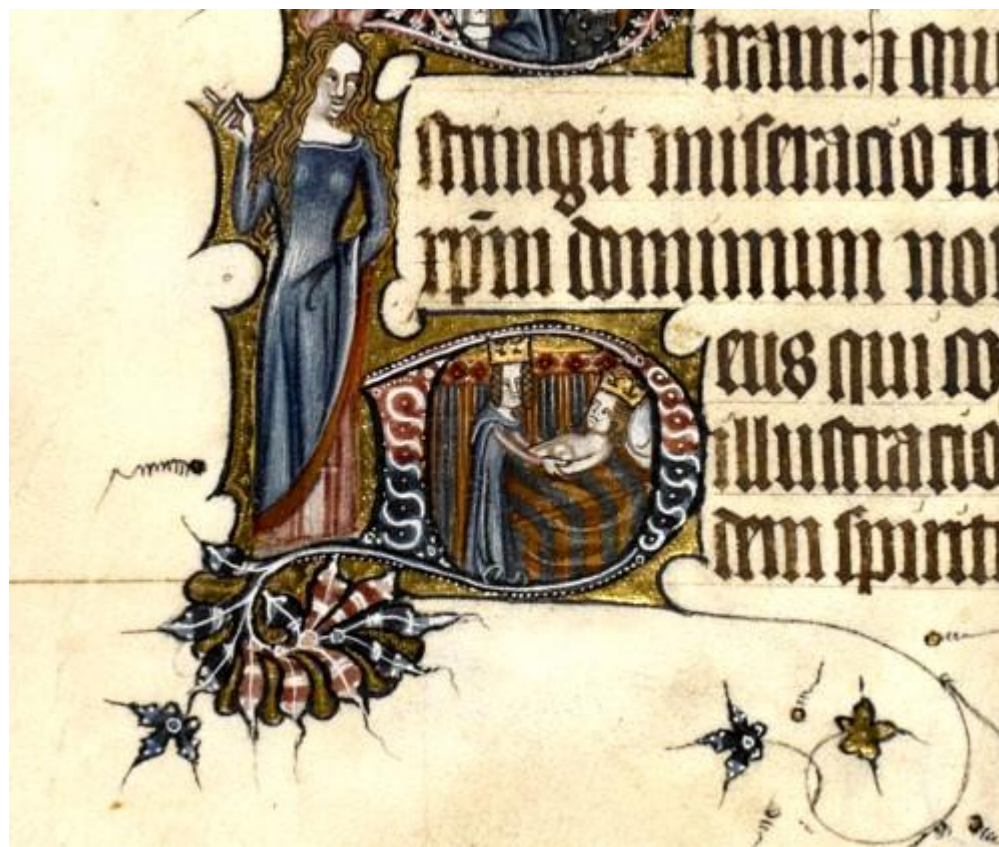 tram: i qui
stringit miseracio tu
xp̄m dominum nos
Deus qui co
illustracio
dem spirit